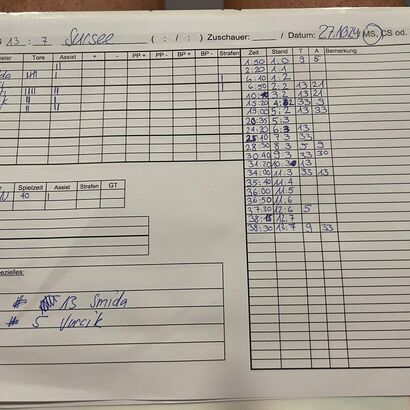 13 : 7 Sursee ( : / : ) Zuschauer: / Datum: 27.10.24 MS, CS od.
Tore Assist + - PP + PP - BP + BP - Strafen
Zeit Stand T A Bemerkung
1:50 1:0 9 5
2:20 1:1
6:10 1:2
6:50 2:2 13 21
3:2 13 21
15:20 4:2 33 9
19:00 5:2 13 33
20:35 5:3
24:20 6:3 13
25:10 7:3 33
28:30 8:3 5 9
30:40 9:3 33 30
31:20 10:3 13
34:00 11:3 33 13
35:40 11:4
36:00 11:5
36:50 11:6
37:30 12:6 5
12:7
38:30 13:7 9 33
Spielzeit Assist Strafen GT
40
# 13 Smida
# 5 Vurcik